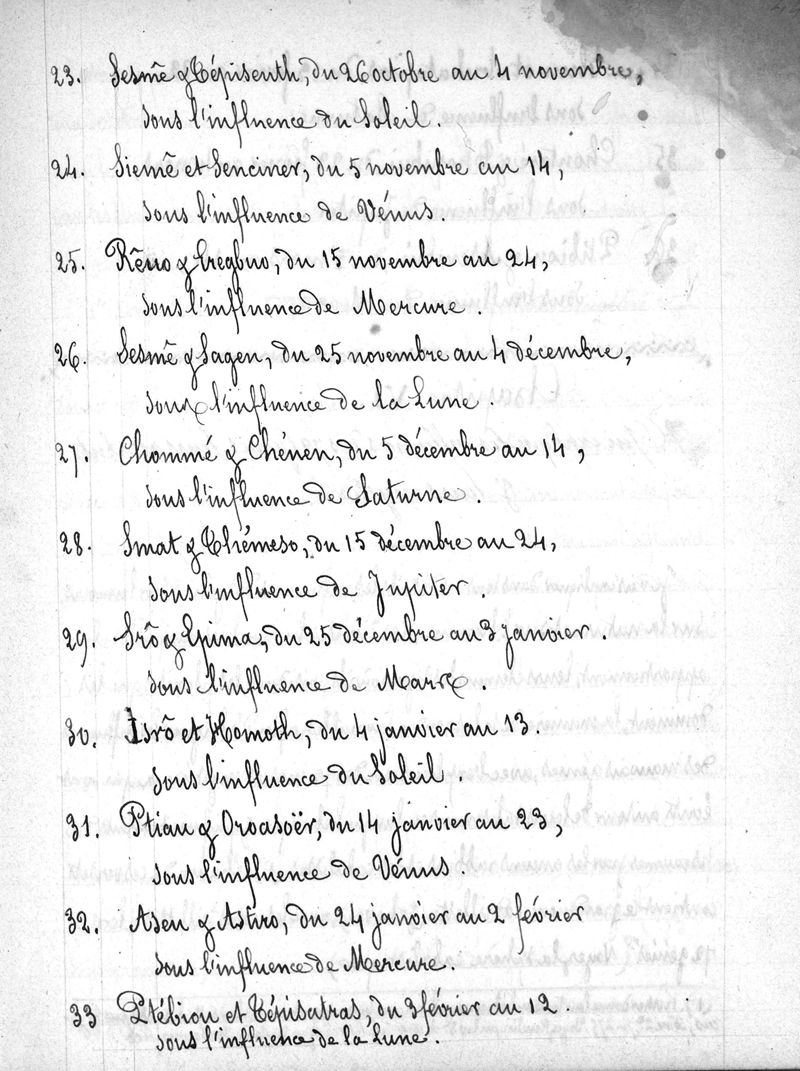 23. Sesmê & Tépisenth, du 26 octobre au 4 novembre,
sous l'influence du Soleil.
24. Siemê et Senciner, du 5 novembre au 14,
sous l'influence de Vénus.
25. Rêuo & Eregbuo, du 15 novembre au 24,
sous l'influence de Mercure.
26. Sesmê & Sagen, du 25 novembre au 4 décembre,
sous l'influence de la Lune.
27. Chommé & Chénen, du 5 décembre au 14,
sous l'influence de Saturne.
28. Smat & Thémeso, du 15 décembre au 24,
sous l'influence de Jupiter.
29. Srô & Epima, du 25 décembre au 3 janvier.
sous l'influence de Mars.
30. Isrô et Homoth, du 4 janvier au 13.
sous l'influence du Soleil.
31. Ptiau & Oroasoër, du 14 janvier au 23,
sous l'influence de Vénus.
32. Aseu & Astiro, du 24 janvier au 2 février
sous l'influence de Mercure.
33 Ptébiou et Tépisatras, du 3 février au 12.
sous l'influence de la Lune.